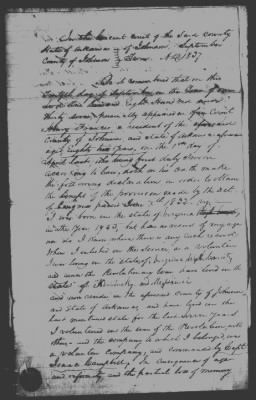 In the Circuit Court of the said county
State of Arkansas } of Johnson September
County of Johnson } Term AD 1837
Be it remembered that on this
day of September in the year of our
Lord One thousand eight hundred and
thirty seven personally appeared in open Court
Henry Francis a resident of the aforesaid
County of Johnson and state of Arkansas
aged eighty two years, on the 1st day of
last, who being first duly sworn
according to law, doth on his oath make
the following declaration in order to obtain
the benefit of the provision made by the act
of Congress passed June 7th 1832.
I was born in the state of Virginia
in the year, but has no record of my age
nor do I know where there is any such record
When I enlisted in the service as a volunteer
I was living in the state of Virginia
and since the Revolutionary war have lived in the
states of Kentucky and
and now reside in the aforesaid County of Johnson
and state of Arkansas, and have lived in the
last mentioned state for the last seven years
I volunteered in the war of the Revolution
and the company to which I belonged was
a volunteer company, and commanded by Capt
Campbell, In consequence of age
and infirmity and the partial loss of memory